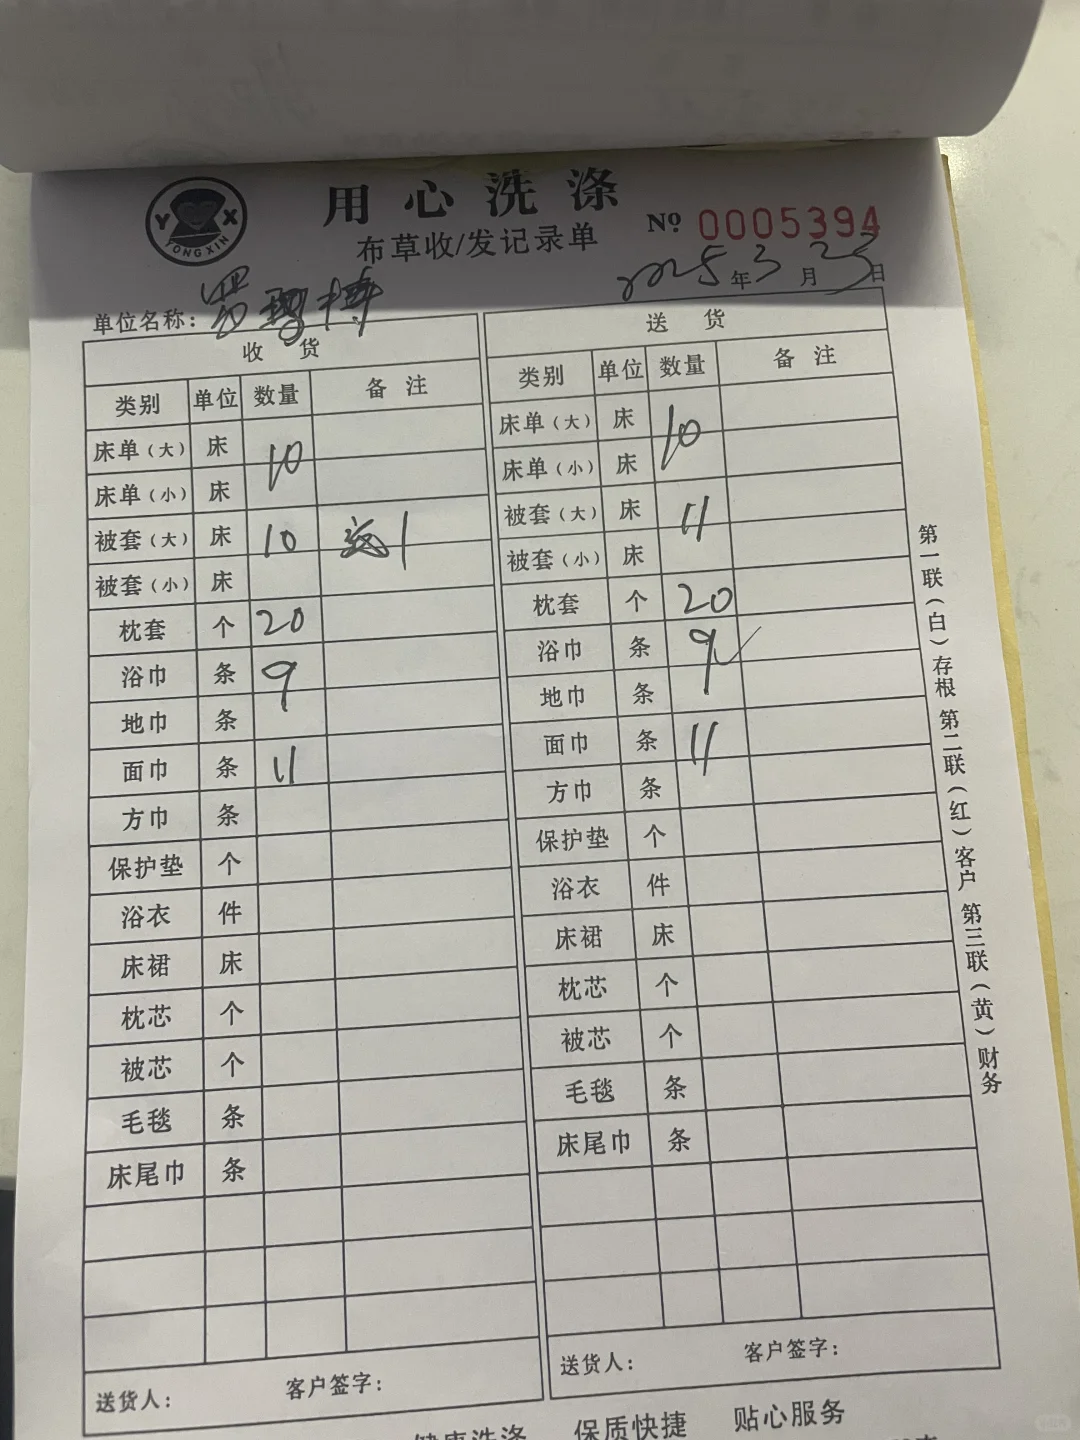 YX
YONG XIN
用心洗涤
布草收/发记录单
Nº 0005394
单位名称:
2025年3月25日
收货
类别 单位 数量 备注
床单(大) 床 10
床单(小) 床
被套(大) 床 10 返1
被套(小) 床
枕套 个 20
浴巾 条 9
地巾 条
面巾 条 11
方巾 条
保护垫 个
浴衣 件
床裙 床
枕芯 个
被芯 个
毛毯 条
床尾巾 条
送货人: 客户签字:
送货
类别 单位 数量 备注
床单(大) 床 10
床单(小) 床
被套(大) 床 11
被套(小) 床
枕套 个 20
浴巾 条 9 ✓
地巾 条
面巾 条 11
方巾 条
保护垫 个
浴衣 件
床裙 床
枕芯 个
被芯 个
毛毯 条
床尾巾 条
送货人: 客户签字:
第一联(白)存根 第二联(红)客户 第三联(黄)财务
健康洗涤 保质快捷 贴心服务